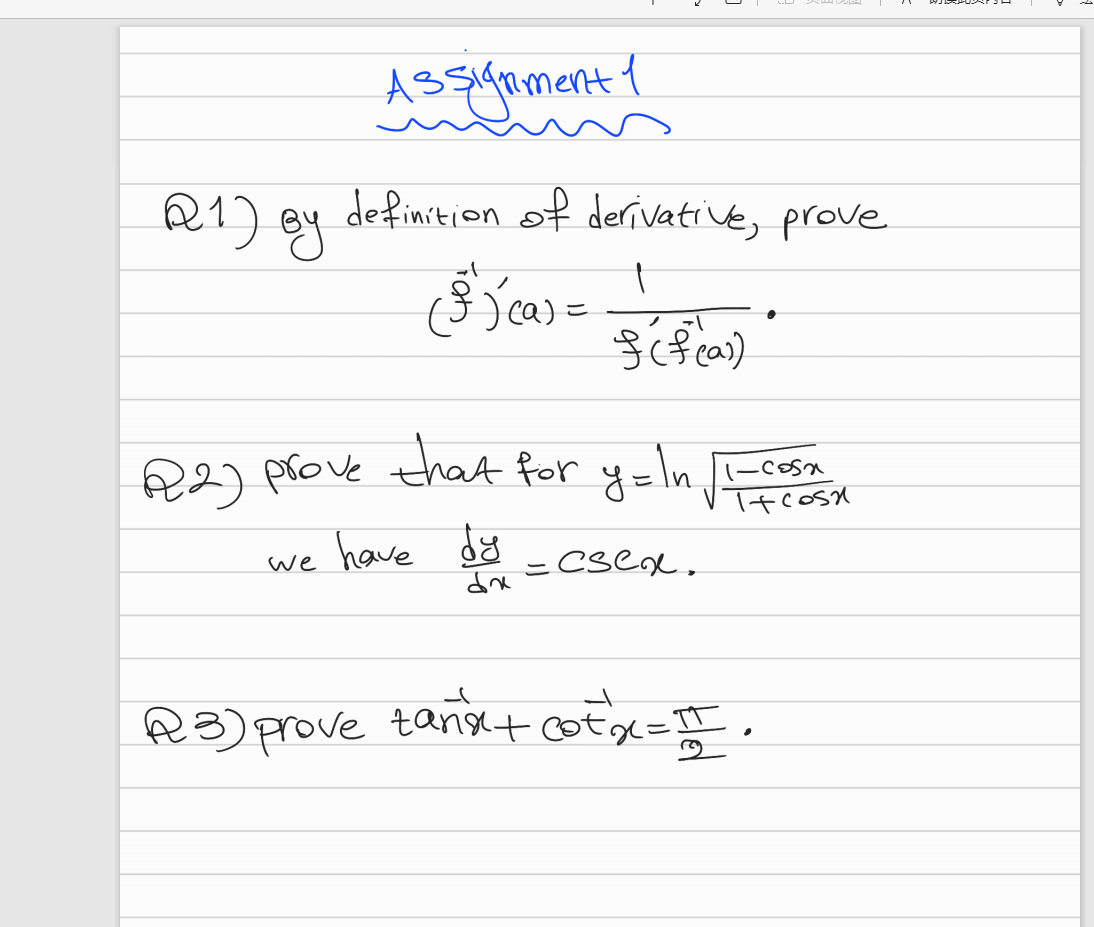 Assignment 1
Q1) By definition of derivative, prove
(f⁻¹)′(a) = 1 / f′(f⁻¹(a)) .
Q2) prove that for y = ln √((1-cosx)/(1+cosx))
we have dy/dx = cscx.
Q3) prove tan⁻¹x + cot⁻¹x = π/2 .